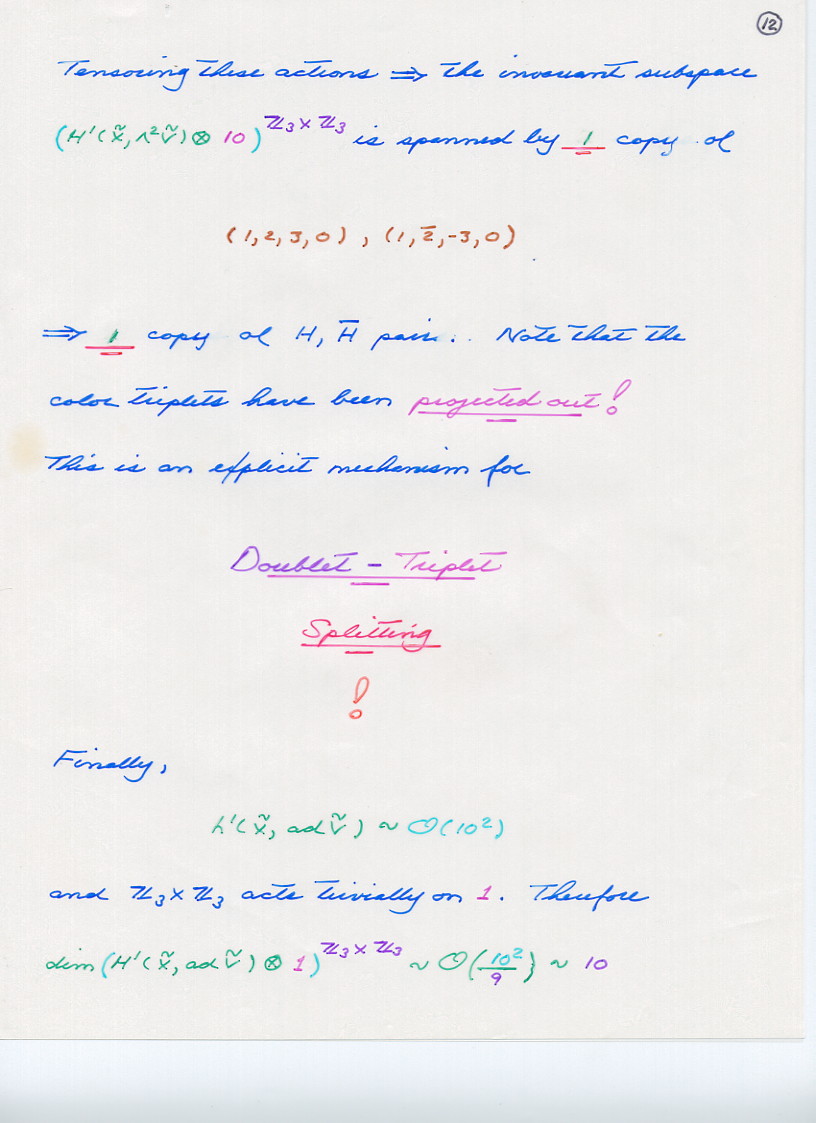 12
Tensoring these actions ⇒ the invariant subspace
(H¹(X̃, Λ²Ṽ) ⊗ 10)^{ℤ₃×ℤ₃} is spanned by 1 copy of
(1,2,3,0) , (1,2̄,-3,0)
⇒ 1 copy of H, H̄ pair. . Note that the
color triplets have been projected out!
This is an explicit mechanism for
Doublet - Triplet
Splitting
!
Finally,
h¹(X̃, adṼ) ~ O(10²)
and ℤ₃×ℤ₃ acts trivially on 1. Therefore
dim(H¹(X̃, adṼ) ⊗ 1)^{ℤ₃×ℤ₃} ~ O(10²/9) ~ 10